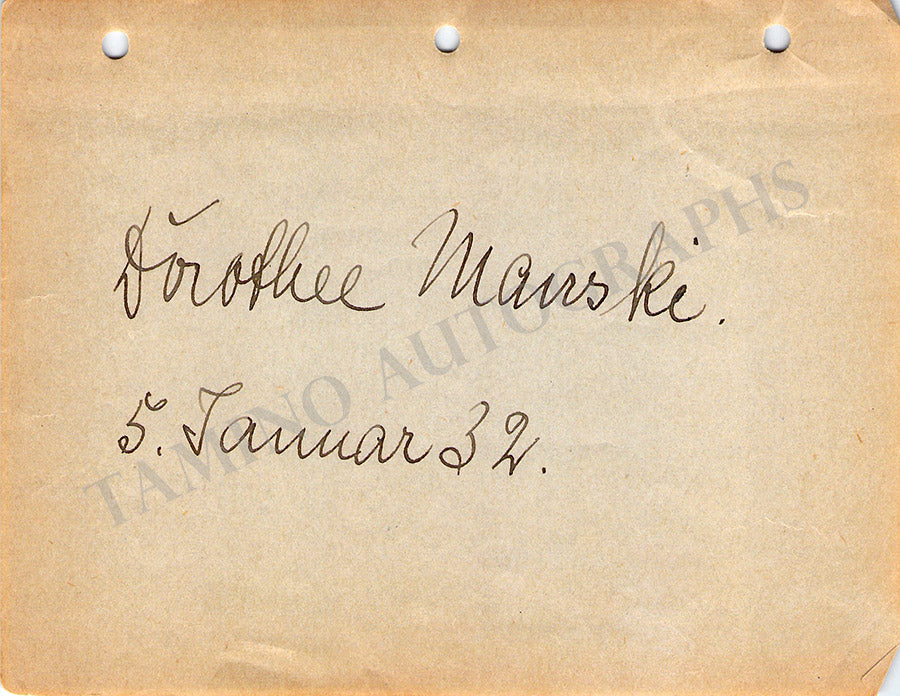 Dorothee Manski.
5. Januar 32.
TAMINO AUTOGRAPHS